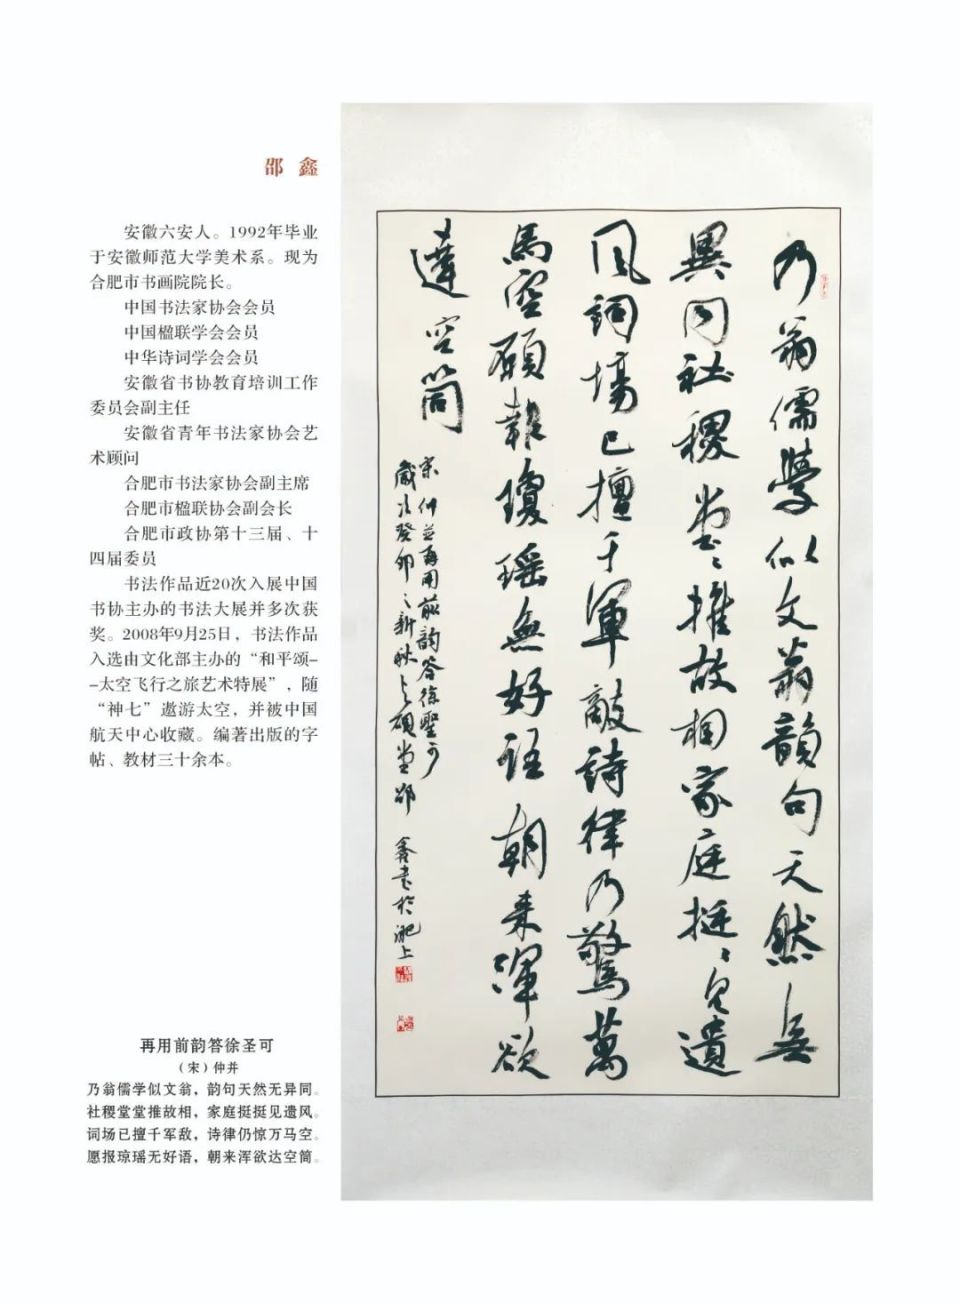 邵 鑫
安徽六安人。1992年毕业
于安徽师范大学美术系。现为
合肥市书画院院长。
中国书法家协会会员
中国楹联学会会员
中华诗词学会会员
安徽省书协教育培训工作
委员会副主任
安徽省青年书法家协会艺
术顾问
合肥市书法家协会副主席
合肥市楹联协会副会长
合肥市政协第十三届、十
四届委员
书法作品近20次入展中国
书协主办的书法大展并多次获
奖。2008年9月25日，书法作品
入选由文化部主办的“和平颂-
-太空飞行之旅艺术特展”，随
“神七”遨游太空，并被中国
航天中心收藏。编著出版的字
帖、教材三十余本。
再用前韵答徐圣可
（宋）仲并
乃翁儒学似文翁，韵句天然无异同。
社稷堂堂推故相，家庭挺挺见遗风。
词场已擅千军敌，诗律仍惊万马空。
愿报琼瑶无好语，朝来浑欲达空筒。
乃翁儒學似文翁韻句天然無
異同社稷堂〻推故相家庭挺〻見遺
風詞場已擅千軍敵詩律乃驚萬
馬空願報瓊瑶無好語朝来渾欲
達空筒
宋仲並再用前韵答徐聖可
歲次癸卯之新秋之碩堂邵鑫書於淝上